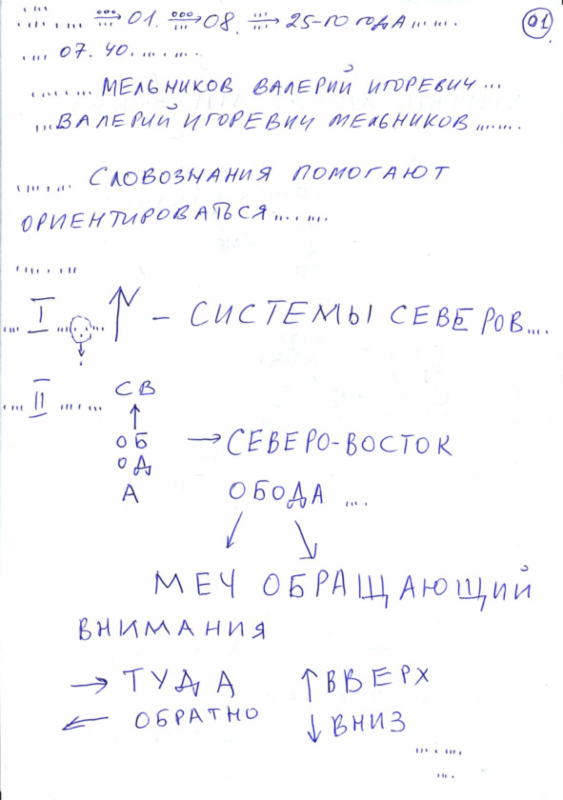 → 01. → 08. → 25-ГО ГОДА...... 01
.... 07. 40. .......
....... МЕЛЬНИКОВ ВАЛЕРИЙ ИГОРЕВИЧ...
...ВАЛЕРИЙ ИГОРЕВИЧ МЕЛЬНИКОВ.......
....... СЛОВОЗНАНИЯ ПОМОГАЮТ
ОРИЕНТИРОВАТЬСЯ.......
.......
.... I ....... ↑ – СИСТЕМЫ СЕВЕРОВ....
.... II ....... СВ
↑
ОБ → СЕВЕРО-ВОСТОК
ОД
А ОБОДА ....
МЕЧ ОБРАЩАЮЩИЙ
ВНИМАНИЯ
→ ТУДА ↑ ВВЕРХ
← ОБРАТНО ↓ ВНИЗ
.......
...